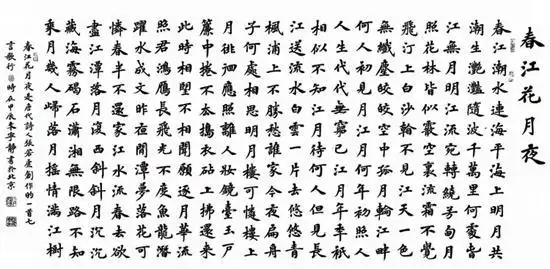 春江花月夜
春江潮水連海平海上明月共
潮生灩灩隨波千萬里何處春
江無月明江流宛轉繞芳甸月
照花林皆似霰空裏流霜不覺
飛汀上白沙看不見江天一色
無纖塵皎皎空中孤月輪江畔
何人初見月江月何年初照人
人生代代無窮已江月年年祇
相似不知江月待何人但見長
江送流水白雲一片去悠悠青
楓浦上不勝愁誰家今夜扁舟
子何處相思明月樓可憐樓上
月徘徊應照離人妝鏡臺玉戶
簾中捲不去搗衣砧上拂還來
此時相望不相聞願逐月華流
照君鴻雁長飛光不度魚龍潛
躍水成文昨夜閒潭夢落花可
憐春半不還家江水流春去欲
盡江潭落月復西斜斜月沉沉
藏海霧碣石瀟湘無限路不知
乘月幾人歸落月搖情滿江樹
春江花月夜是唐代詩人張若虛創作的一首七
言歌行 時在甲辰 寧靜書於北京